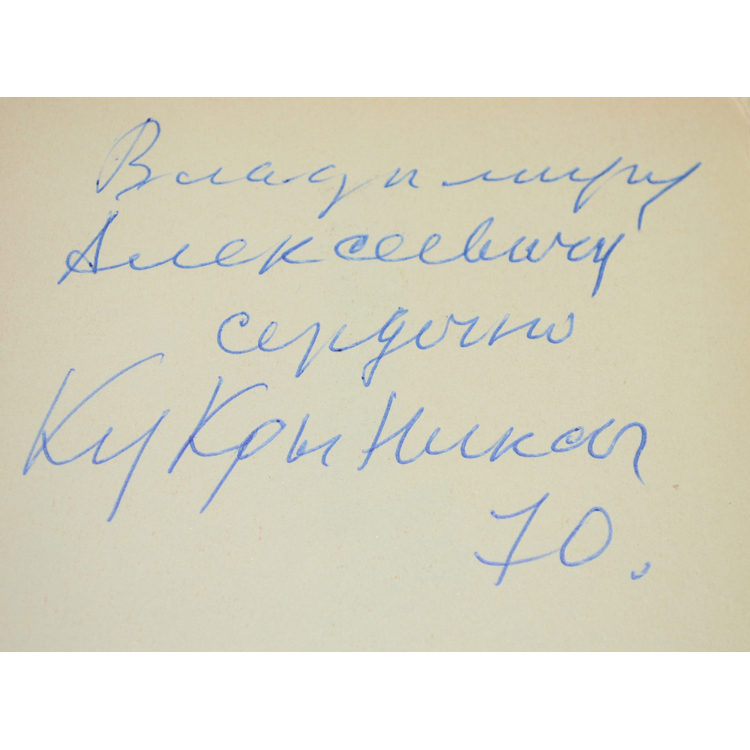 Владимиру
Алексеевичу
сердечно
КуКрыНиксы
70.